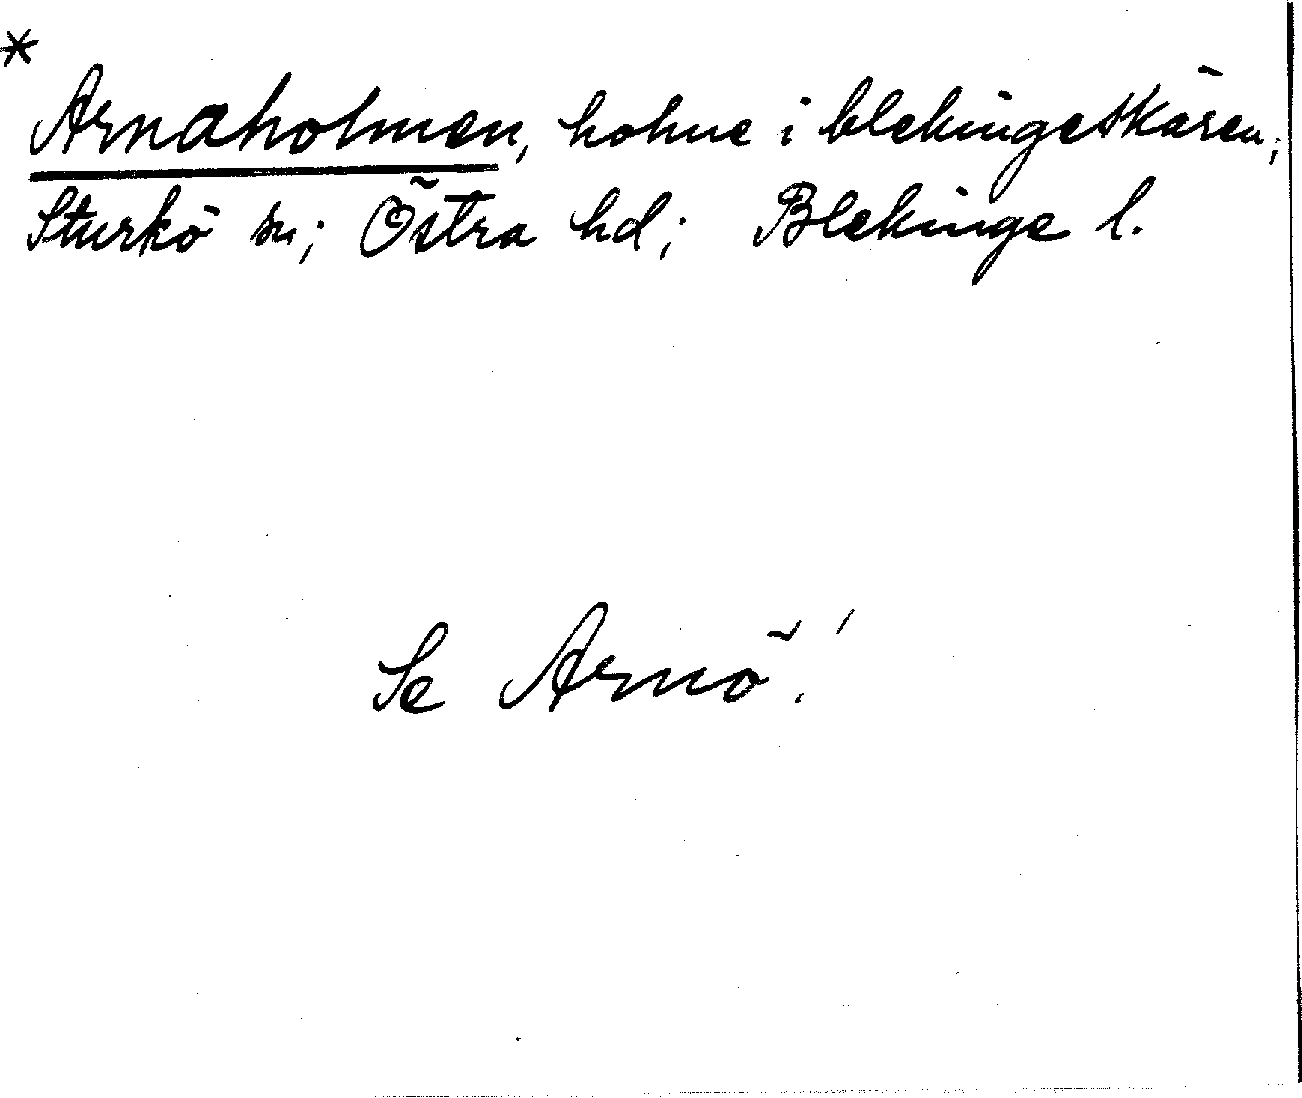 *
Arnaholmen, holme i blekingeskären;
Sturkö sn; Östra hd; Blekinge l.
Se Arnö!